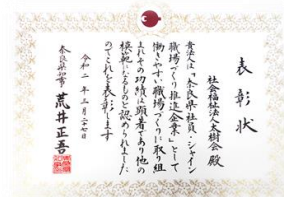 表彰状
社会福祉法人太樹会 殿
貴法人は「奈良県社員・シャイン
職場づくり推進企業」として
働きやすい職場づくりに取り組
まれその功績は顕著であり他の
模範になるものと認められました
のでこれを表彰します
令和二年三月二十七日
奈良県知事 荒井正吾